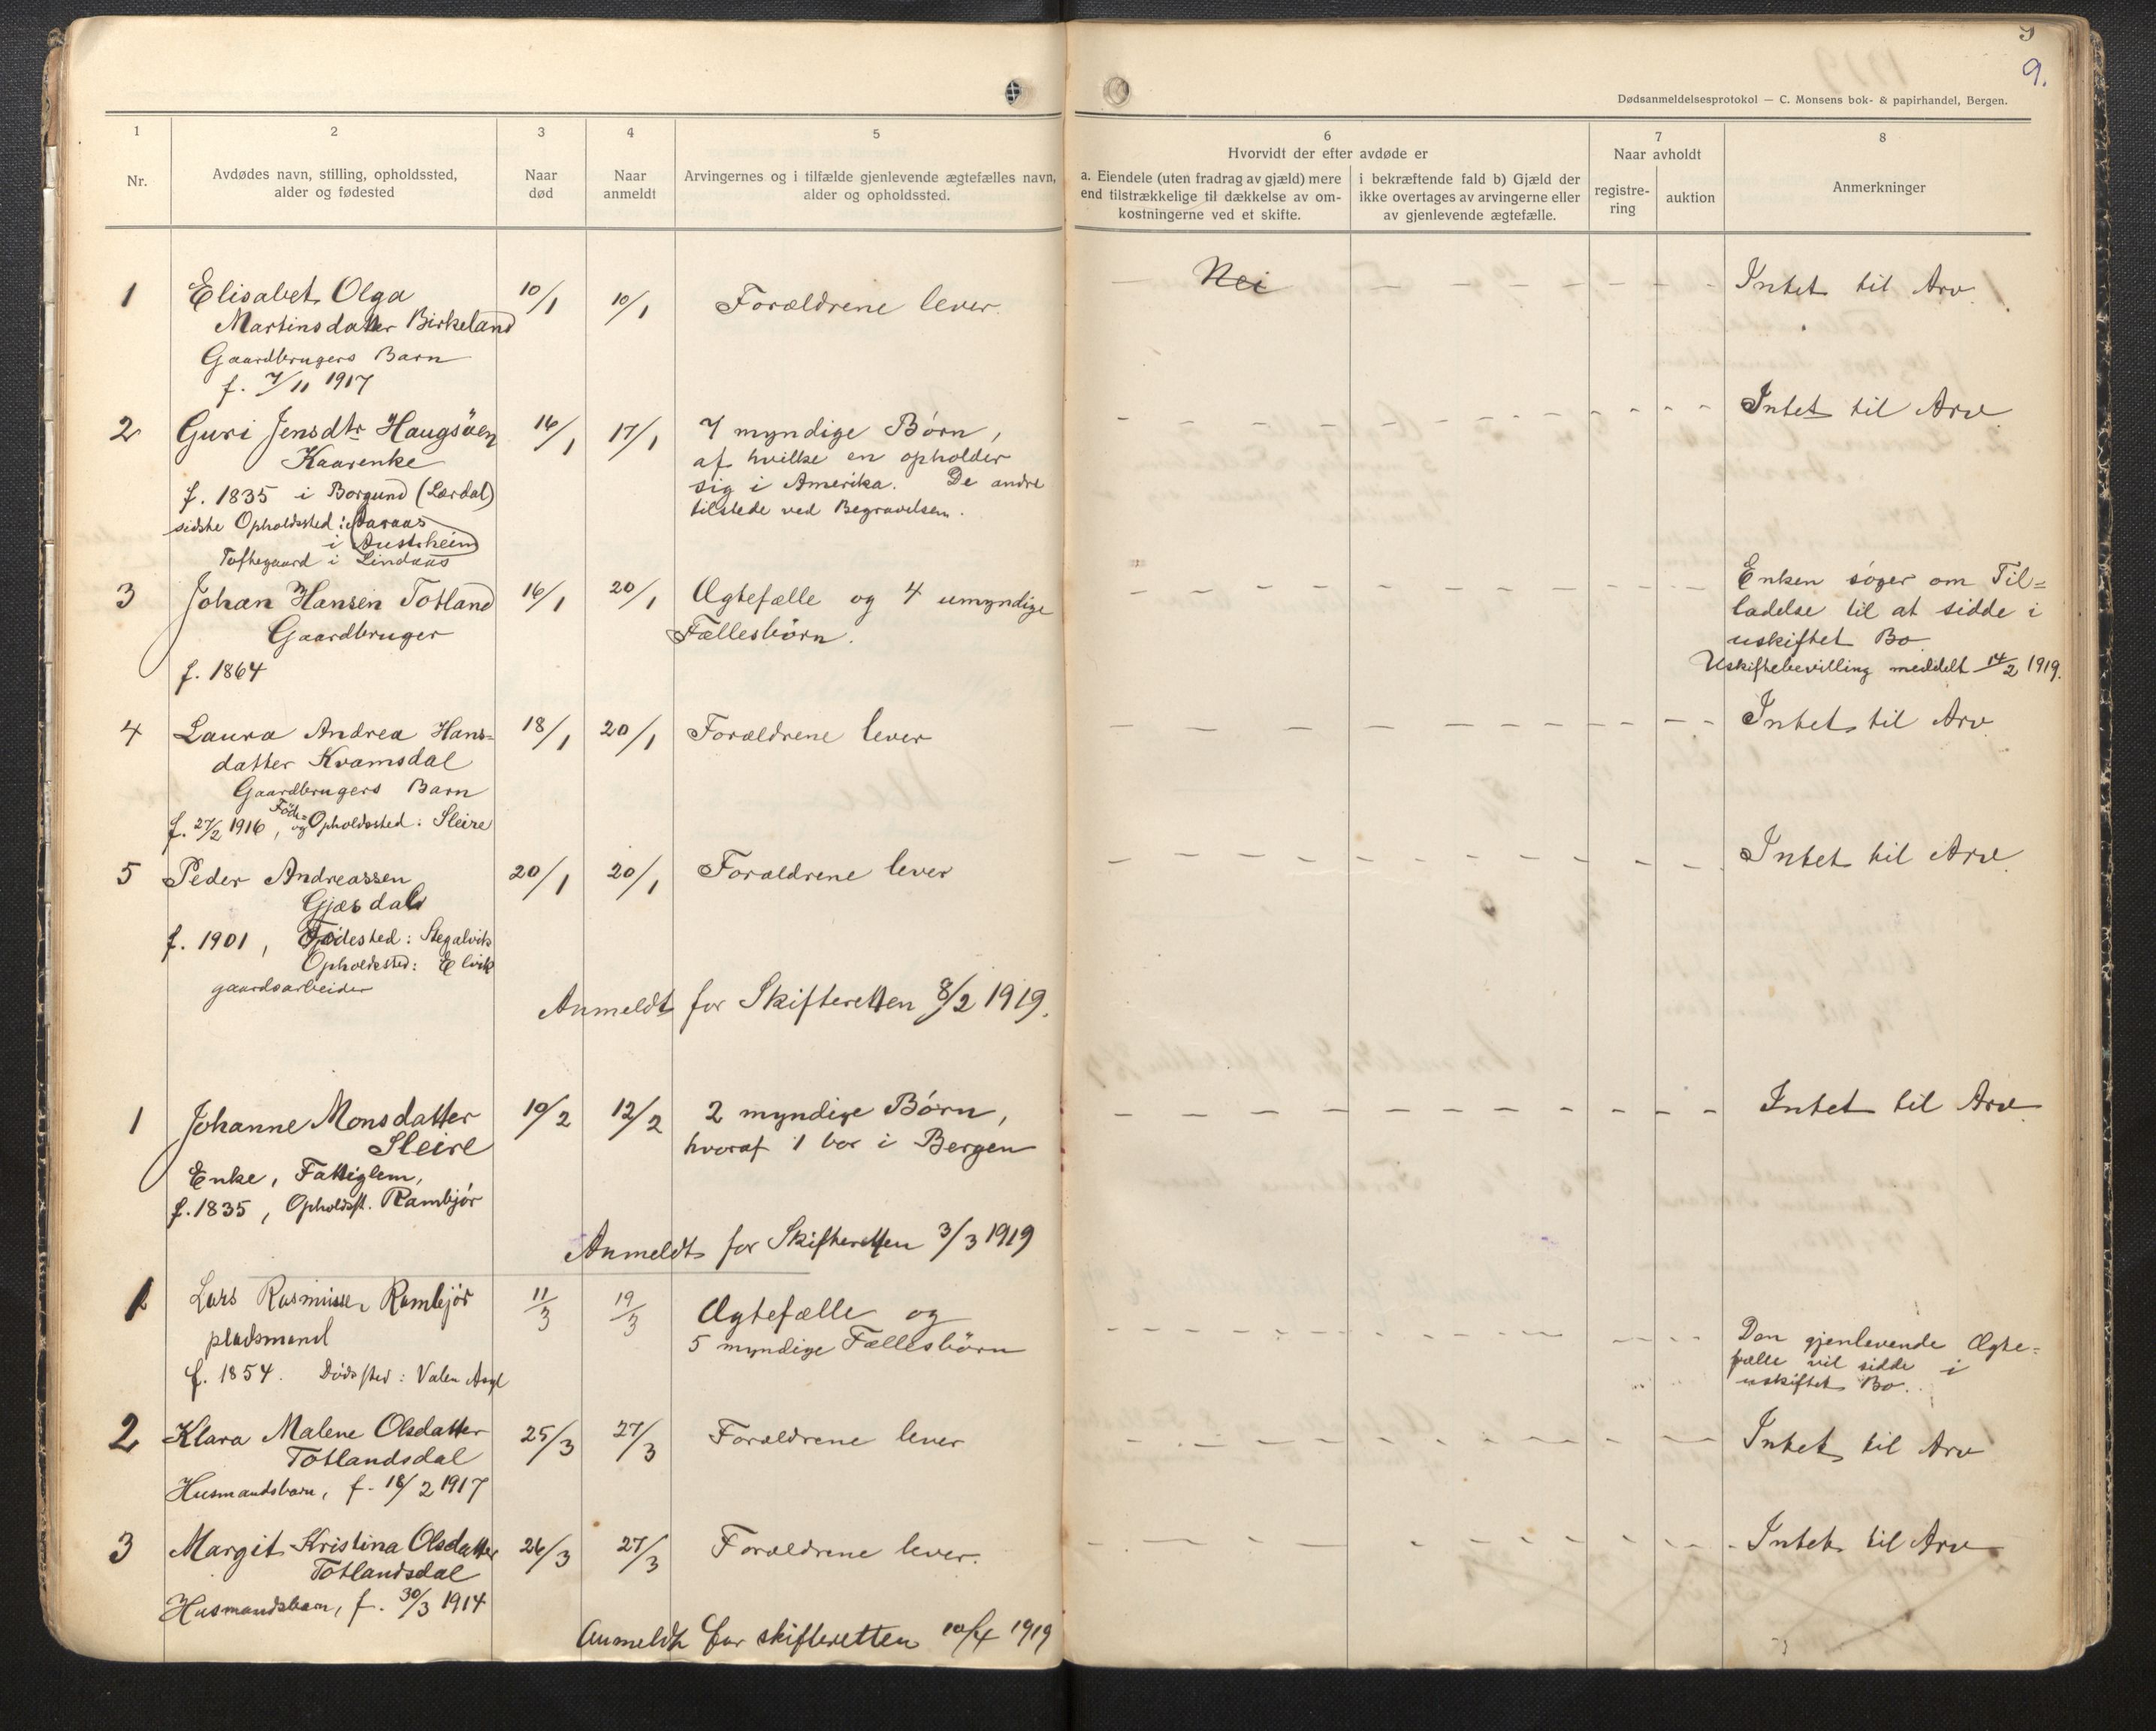 9.
Dødsanmeldelsesprotokol — C. Monsens bok- & papirhandel, Bergen.
1
2
3
4
5
6
7
8
Nr.
Avdødes navn, stilling, opholdssted,
alder og fødested
Naar
død
Naar
anmeldt
Arvingernes og i tilfælde gjenlevende ægtefælles navn,
alder og opholdssted.
Hvorvidt der efter avdøde er
a. Eiendele (uten fradrag av gjæld) mere
end tilstrækkelige til dækkelse av om-
kostningerne ved et skifte.
i bekræftende fald b) Gjæld der
ikke overtages av arvingerne eller
av gjenlevende ægtefælle.
Naar avholdt
registre-
ring
auktion
Anmerkninger
1 Elisabet Olga 10/1 10/1 Forældrene lever. Nei Intet til Arv.
Martinsdatter Birkeland
Gaardbrugers Barn
f. 7/11 1917
2 Guri Jensdtr Haugsöen 16/1 17/1 7 myndige Børn, Intet til Arv
Kaarenke af hvilke en opholder
f. 1835 i Borgund (Lærdal) sig i Amerika. De andre
sidste Opholdssted: tilstede ved Begravelsen.
i Austrheim
Toftegaard i Lindaas
3 Johan Hansen Totland 16/1 20/1 Ægtefælle og 4 umyndige Enken søger om Til=
Gaardbruger Fællesbørn. ladelse til at sidde i
uskiftet Bo
f. 1864 Uskiftebevilling meddelt 14/2 1919.
4 Laura Andrea Hans= 18/1 20/1 Forældrene lever Intet til Arv
datter Kvamsdal
Gaardbrugers Barn
f. 27/2 1916, Föde= og Opholdssted: Sleire
5 Peder Andreassen 20/1 20/1 Forældrene lever Intet til Arv.
Gjæsdal
f. 1901, Fødested: Stegalvik
Opholdssted: Elvik
gaardsarbeider
Anmeldt for Skifteretten 8/2 1919.
1 Johanne Monsdatter 10/2 12/2 2 myndige Børn, Intet til Arv
Sleire hvoraf 1 bor i Bergen
Enke, Fattiglem,
f. 1835, Opholdsst. Rambjør
Anmeldt for Skifteretten 3/3 1919
1 Lars Rasmussen Rambjør 11/3 19/3 Ægtefælle og Den gjenlevende Ægte=
pladsmand 5 myndige Fællesbörn fælle vil sidde i
f. 1854. Dødssted: Valen Asyl uskiftet Bo.
2 Klara Malene Olsdatter 25/3 27/3 Forældrene lever Intet til Arv
Totlandsdal
Husmandsbarn, f. 18/2 1917
3 Margit Kristina Olsdatter 26/3 27/3 Forældrene lever. Intet til Arv
Totlandsdal
Husmandsbarn, f. 30/3 1914
Anmeldt for skifteretten 10/4 1919